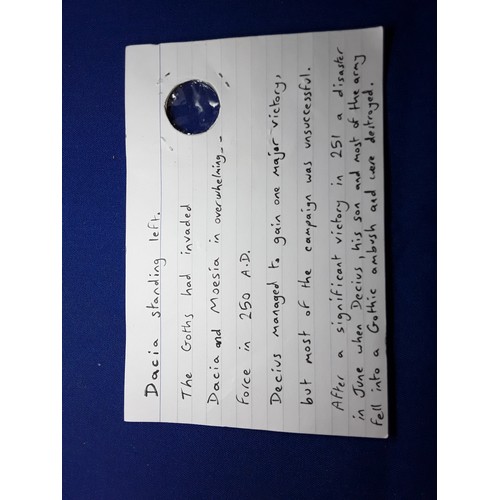 Dacia standing left.
The Goths had invaded
Dacia and Moesia in overwhelming--
Force in 250 A.D.
Decius managed to gain one major victory,
but most of the campaign was unsuccessful.
After a significant victory in 251 a disaster
in June when Decius, his son and most of the army
fell into a Gothic ambush and were destroyed.